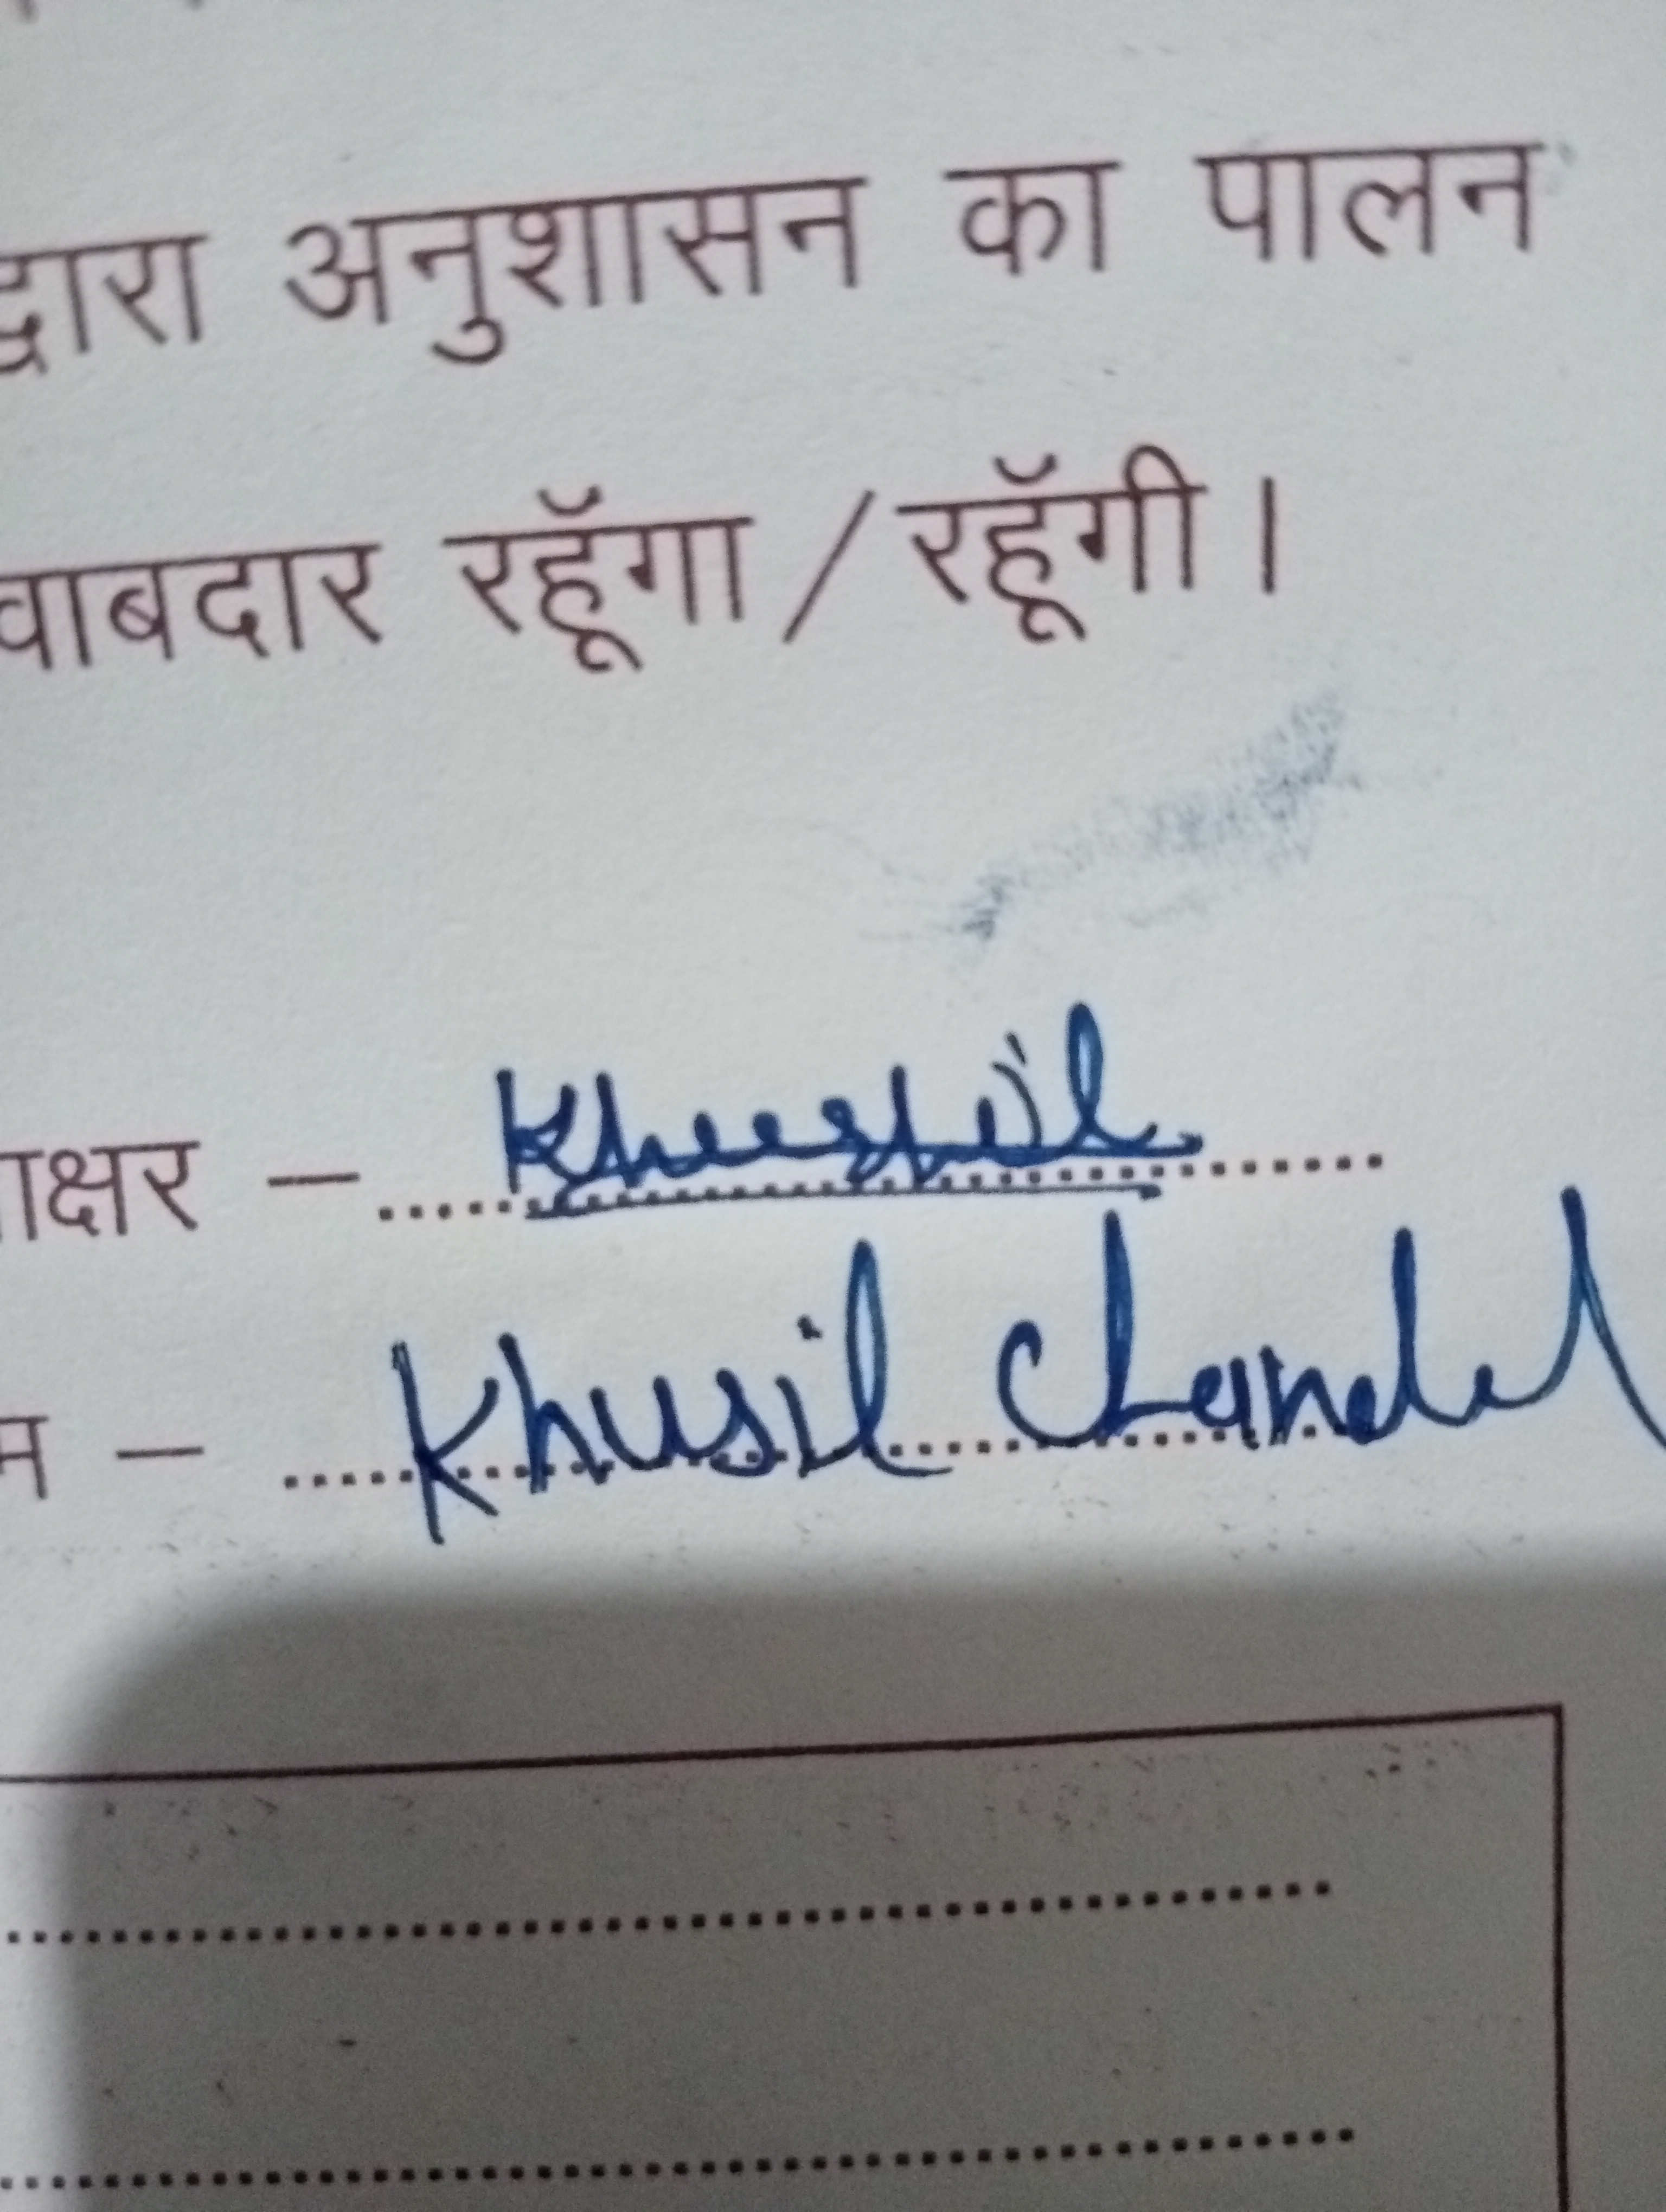 द्वारा अनुशासन का पालन
वाबदार रहूॅंगा / रहूॅंगी ।
ाक्षर – Khushil
म – Khusil Chandel